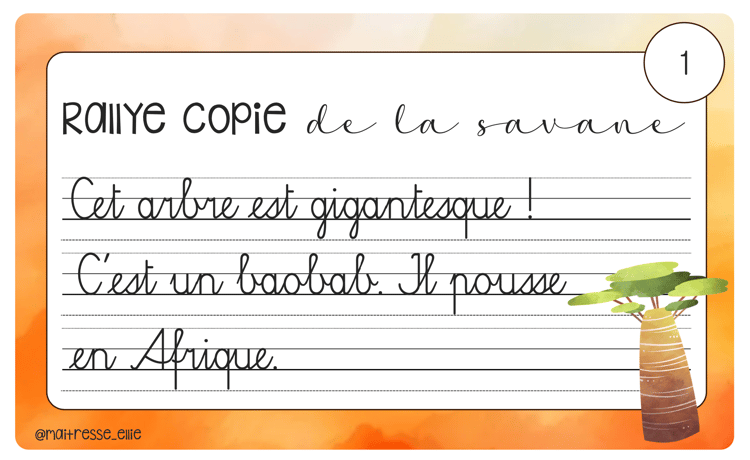 1
Rallye copie de la savane
Cet arbre est gigantesque !
C'est un baobab. Il pousse
en Afrique.
@maitresse_ellie